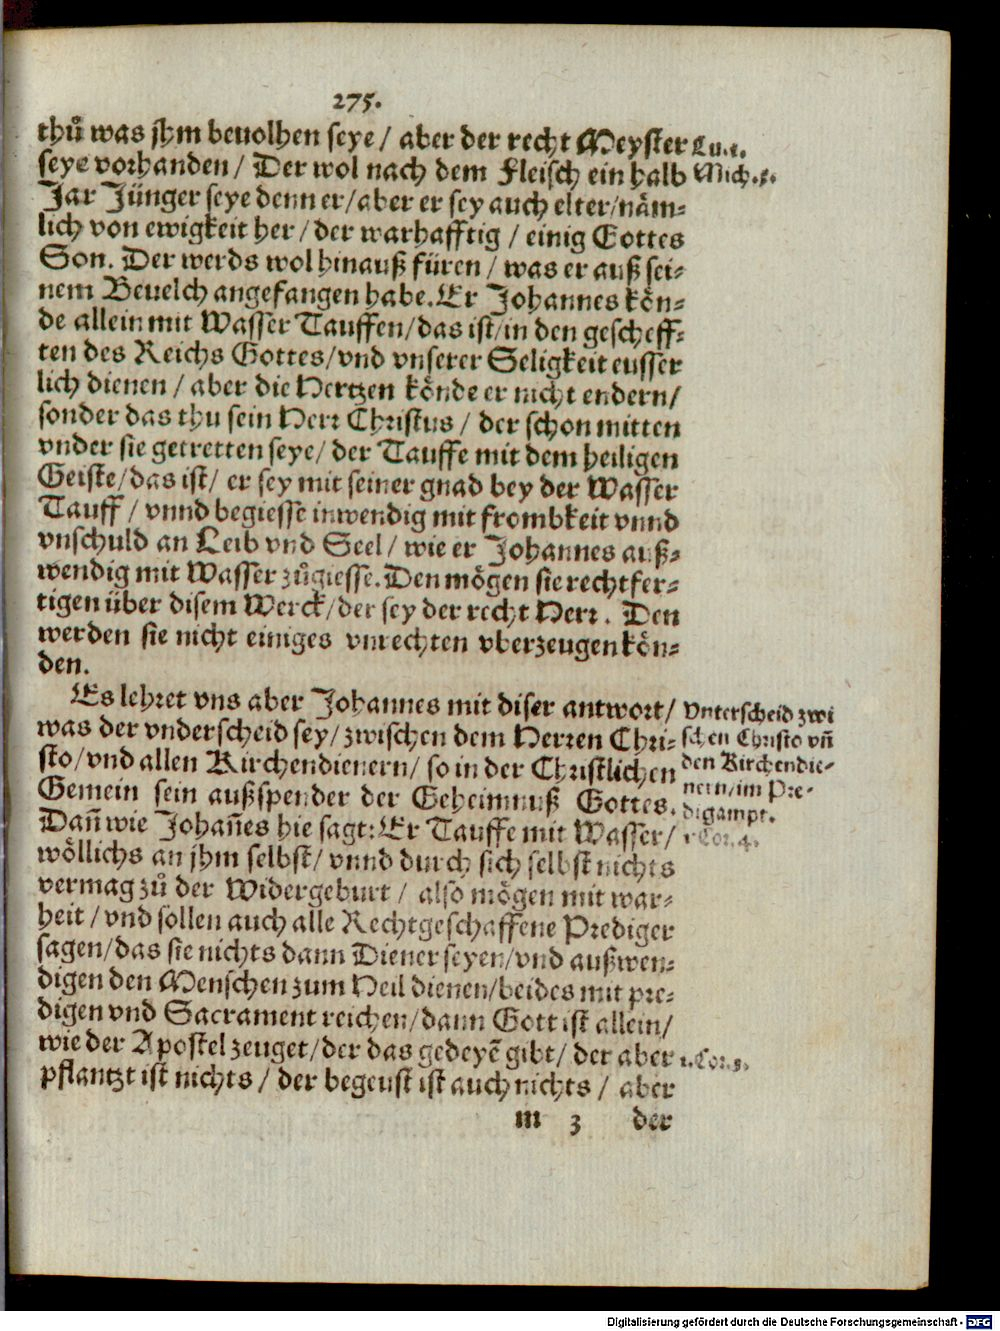 275.
thů was jhm beuolhen seye / aber der recht Meyster
Luc.1.
seye vorhanden / Der wol nach dem Fleisch ein halb
Mich.5.
Jar Jünger seye denn er/aber er sey auch elter/näm-
lich von ewigkeit her / der warhafftig / einig Gottes
Son. Der werds wol hinauß füren / was er auß sei-
nem Beuelch angefangen habe. Er Johannes kön-
de allein mit Wasser Tauffen/das ist/in den gescheff-
ten des Reichs Gottes/vnd vnserer Seligkeit eusser
lich dienen / aber die Hertzen könde er nicht endern/
sonder das thu sein Herr Christus / der schon mitten
vnder sie getretten seye/ der Tauffe mit dem heiligen
Geiste/das ist/ er sey mit seiner gnad bey der Wasser
Tauff / vnnd begiesse inwendig mit frombkeit vnnd
vnschuld an Leib vnd Seel / wie er Johannes auß-
wendig mit Wasser zůgiesse. Den mögen sie rechtfer-
tigen über disem Werck/der sey der recht Herr. Den
werden sie nicht einiges vnrechten vberzeugen kön-
den.
Es lehret vns aber Johannes mit diser antwort/
was der vnderscheid sey/zwischen dem Herren Chri-
sto/vnd allen Kirchendienern/ so in der Christlichen
Gemein sein außspender der Geheimnuß Gottes.
Dañ wie Johañes hie sagt: Er Tauffe mit Wasser/
wöllichs an jhm selbst/ vnnd durch sich selbst nichts
vermag zů der Widergeburt / also mögen mit war-
heit / vnd sollen auch alle Rechtgeschaffene Prediger
sagen/das sie nichts dann Diener seyen/vnd außwen-
digen den Menschen zum Heil dienen/beides mit pre-
digen vnd Sacrament reichen/dann Gott ist allein/
wie der Apostel zeuget/der das gedeyẽ gibt/ der aber
pflantzt ist nichts / der begeust ist auch nichts / aber
Vnterscheid zwi
schen Christo vñ
den Kirchendie-
nern/im Pre-
digampt.
1.Cor.4.
1.Cor.3.
m 3 der
Digitalisierung gefördert durch die Deutsche Forschungsgemeinschaft - DFG